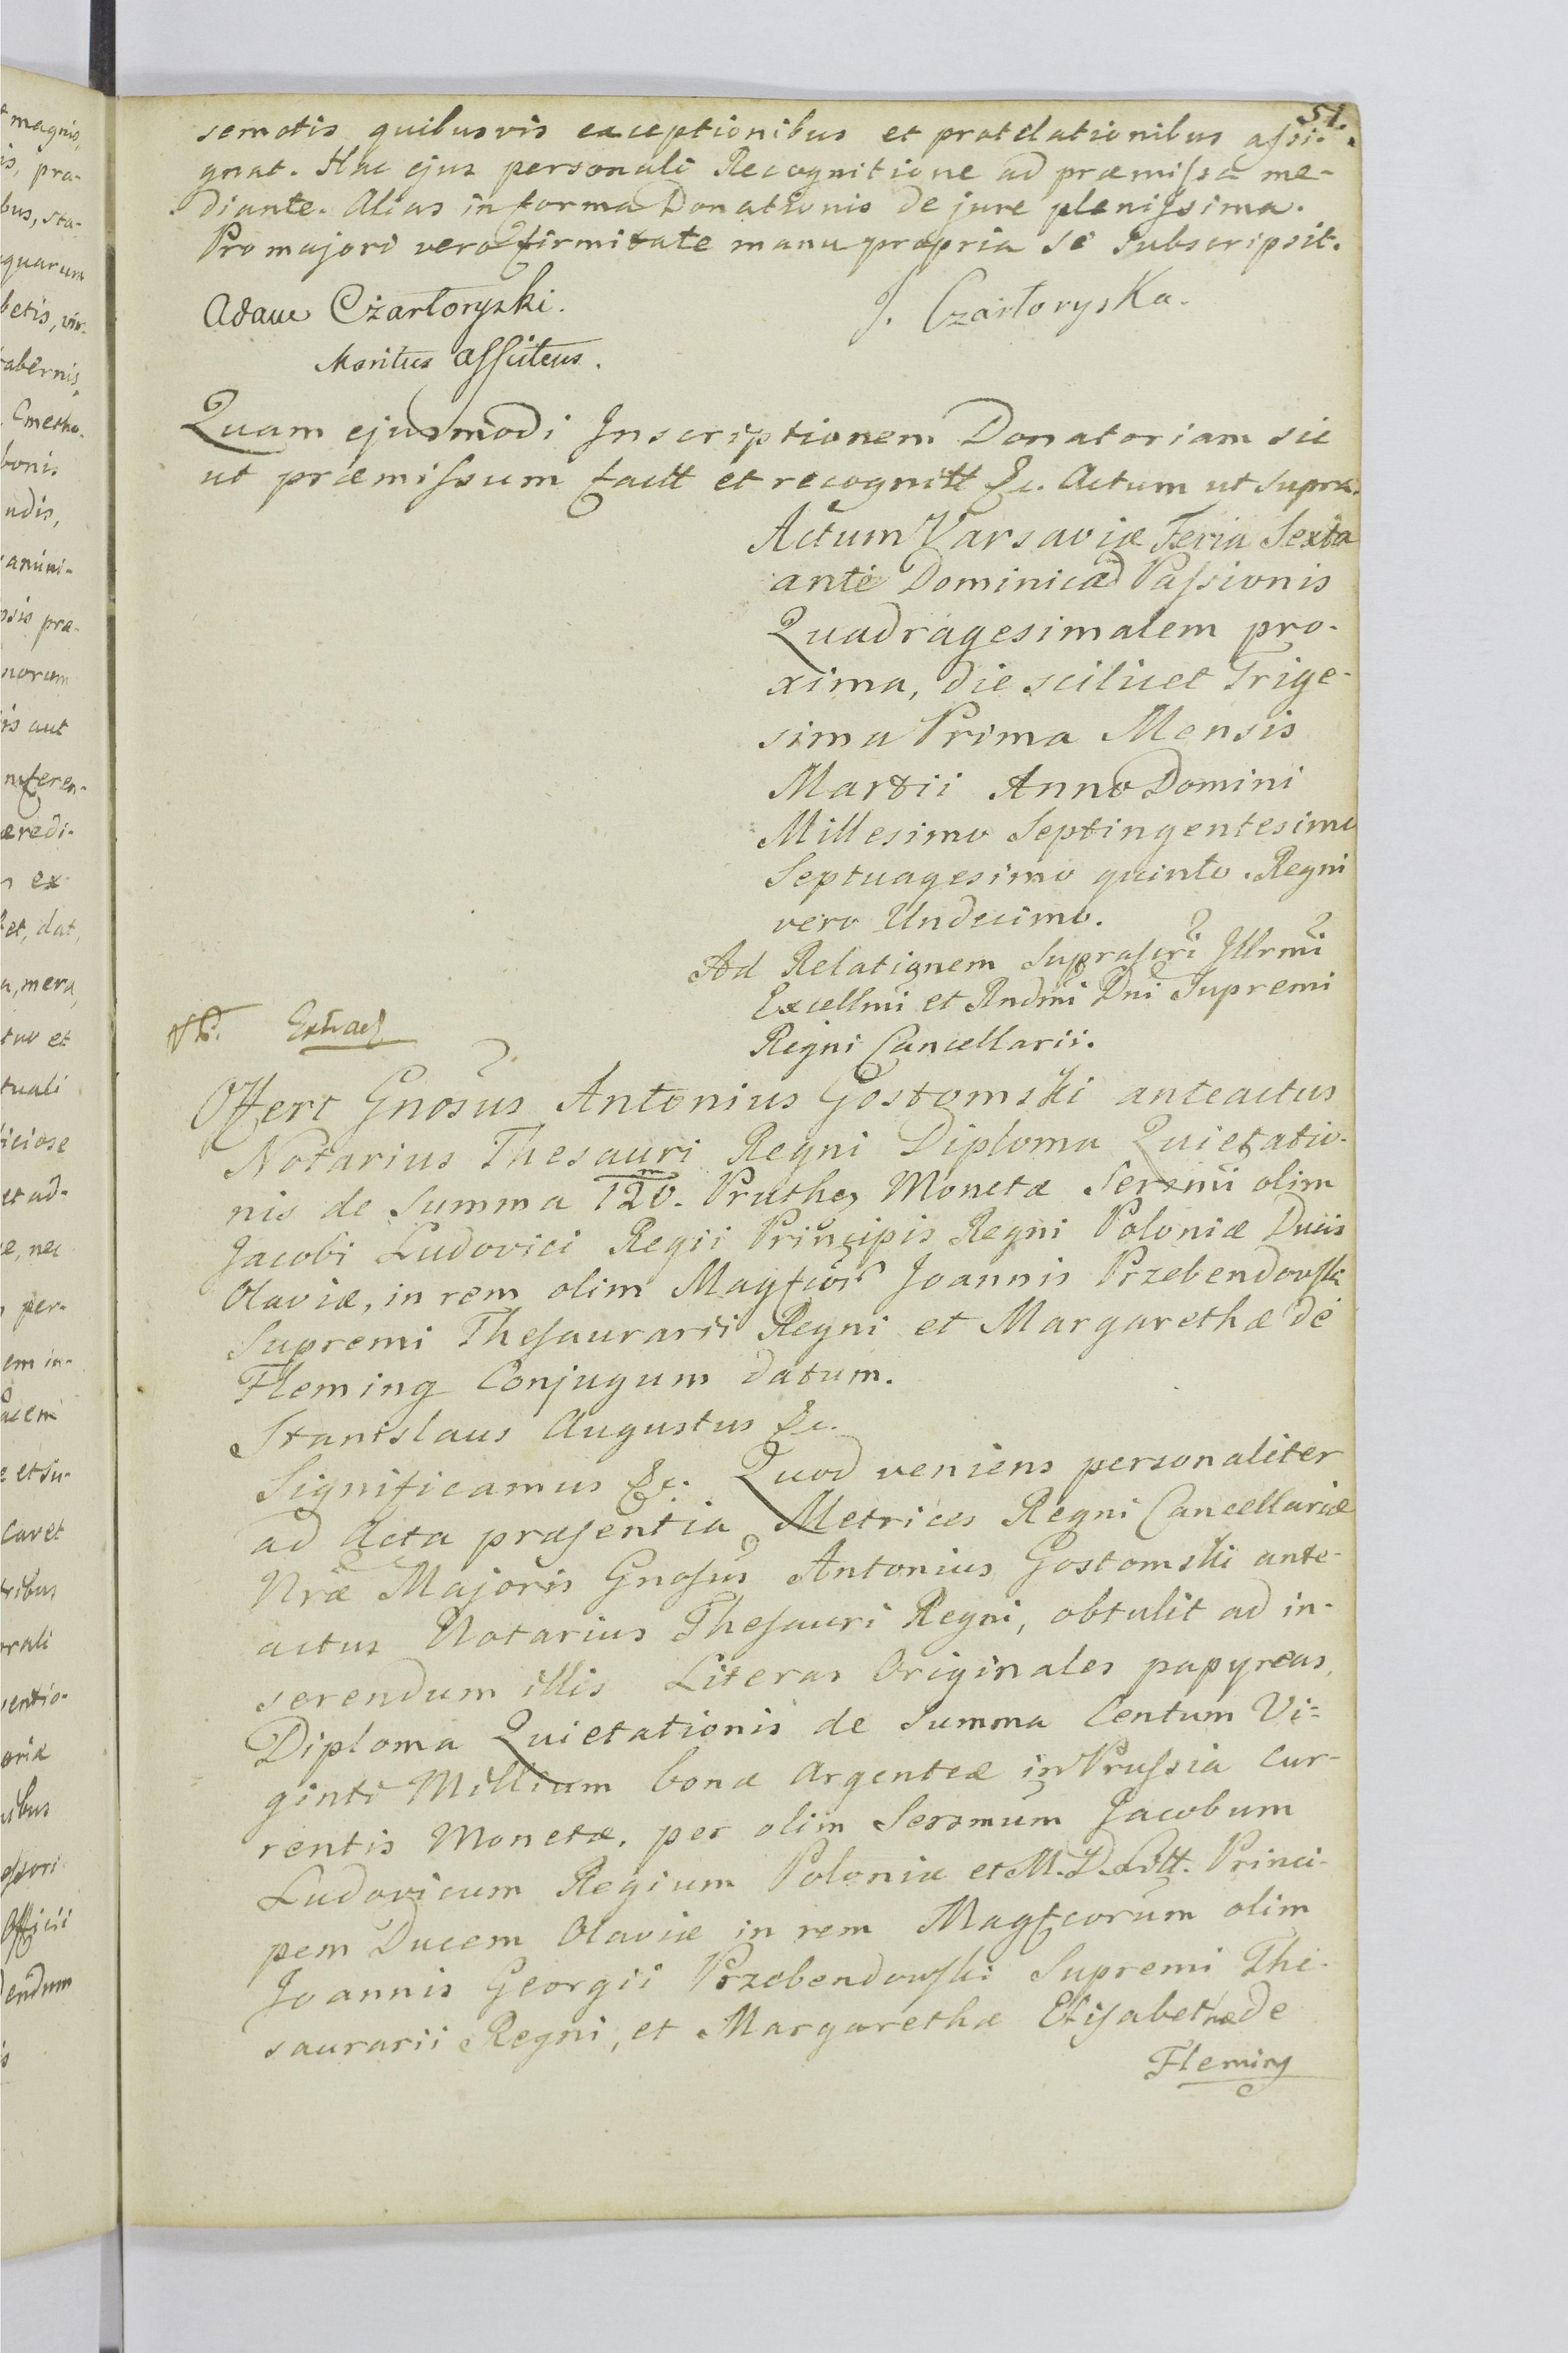 51.
semotis quibusvis exceptionibus et protelationibus assi-
gnat. Hac ejus personali Recognitione ad præmissa me-
diante. Alias in forma Donationis de jure plenissima.
Pro majori vero firmitate manu propria se subscripsit.
Adam Czartoryski. J. Czartoryska.
Maritus assistens.
Quam ejusmodi Inscriptionem Donatoriam sic
ut præmissum factt et recognitt &c. Actum ut supra.
Actum Varsaviæ Feria Sexta
ante Dominicā Passionis
Quadragesimalem pro-
xima, die scilicet Trige-
sima Prima Mensis
Martii Anno Domini
Millesimo Septingentesimo
Septuagesimo quinto. Regni
vero Undecimo.
Ad Relationem suprascri Illrmi
Excellmi et Rndmi Dni Supremi
Regni Cancellarii.
Extrad
Offert Gnosus Antonius Gostomski anteactus
Notarius Thesauri Regni Diploma Quietatio-
nis de Summa 120.m Pruthen Monetæ Serenmi olim
Jacobi Ludovici Regii Principis Regni Poloniæ Ducis
Olaviæ, in rem olim Magfcor Joannis Przebendowski
Supremi Thesaurarii Regni et Margarethæ de
Fleming Conjugum datum.
Stanislaus Augustus &c.
Significamus &c. Quod veniens personaliter
ad Acta præsentia Metrices Regni Cancellariæ
Nræ Majoris Gnosus Antonius Gostomski ante-
actus Notarius Thesauri Regni, obtulit ad in-
serendum illis Literas Originales papyreas,
Diploma Quietationis de Summa Centum Vi=
ginti Millium bonæ argenteæ in Prussia cur-
rentis Monetæ, per olim Serenmum Jacobum
Ludovicum Regium Poloniæ et M. D. Litt. Princi-
pem Ducem Olaviæ in rem Magfcorum olim
Joannis Georgii Przebendowski Supremi The-
saurarii Regni, et Margarethæ Elisabethæ de
Fleming